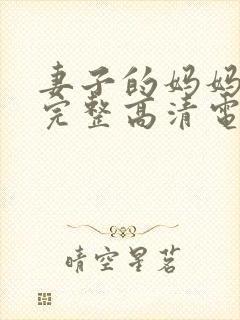 妻子的妈妈
完整高清电
晴空星茗